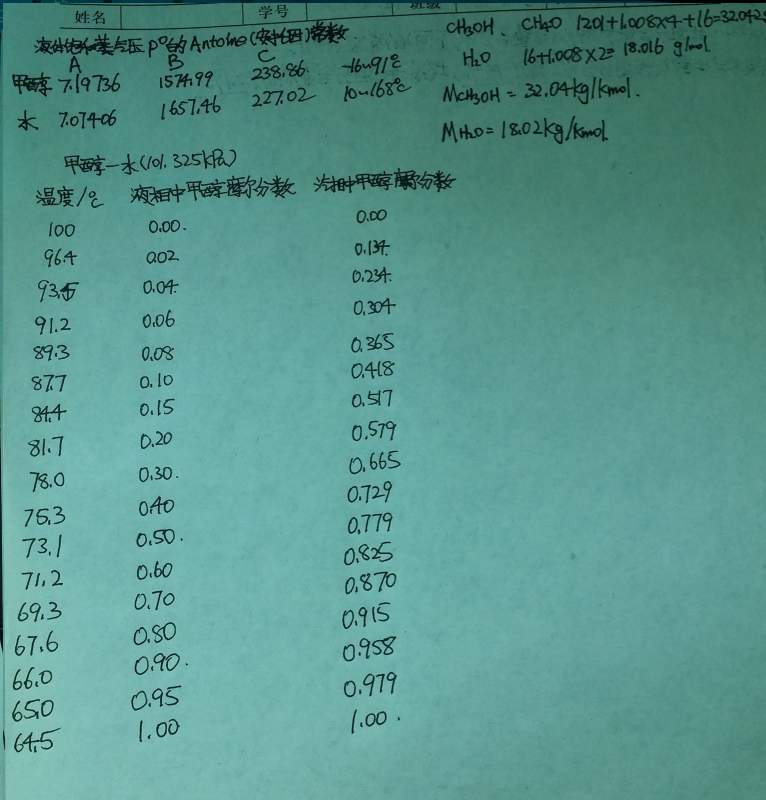 姓名 学号 班级
液体饱和蒸气压p°的Antoine(安托因)常数
A B C
甲醇 7.19736 1574.99 238.86 -16~91℃
水 7.07406 1657.46 227.02 10~168℃
CH3OH. CH4O 12.01+1.008×4+16=32.042
H2O 16+1.008×2=18.016 g/mol
MCH3OH=32.04kg/kmol.
MH2O=18.02kg/kmol
甲醇—水(101.325kPa)
温度/℃ 液相中甲醇摩尔分数 汽相中甲醇摩尔分数
100 0.00. 0.00
96.4 0.02 0.134
93.5 0.04 0.234
91.2 0.06 0.304
89.3 0.08 0.365
87.7 0.10 0.418
84.4 0.15 0.517
81.7 0.20 0.579
78.0 0.30. 0.665
75.3 0.40 0.729
73.1 0.50. 0.779
71.2 0.60 0.825
69.3 0.70 0.870
67.6 0.80 0.915
66.0 0.90. 0.958
65.0 0.95 0.979
64.5 1.00 1.00.